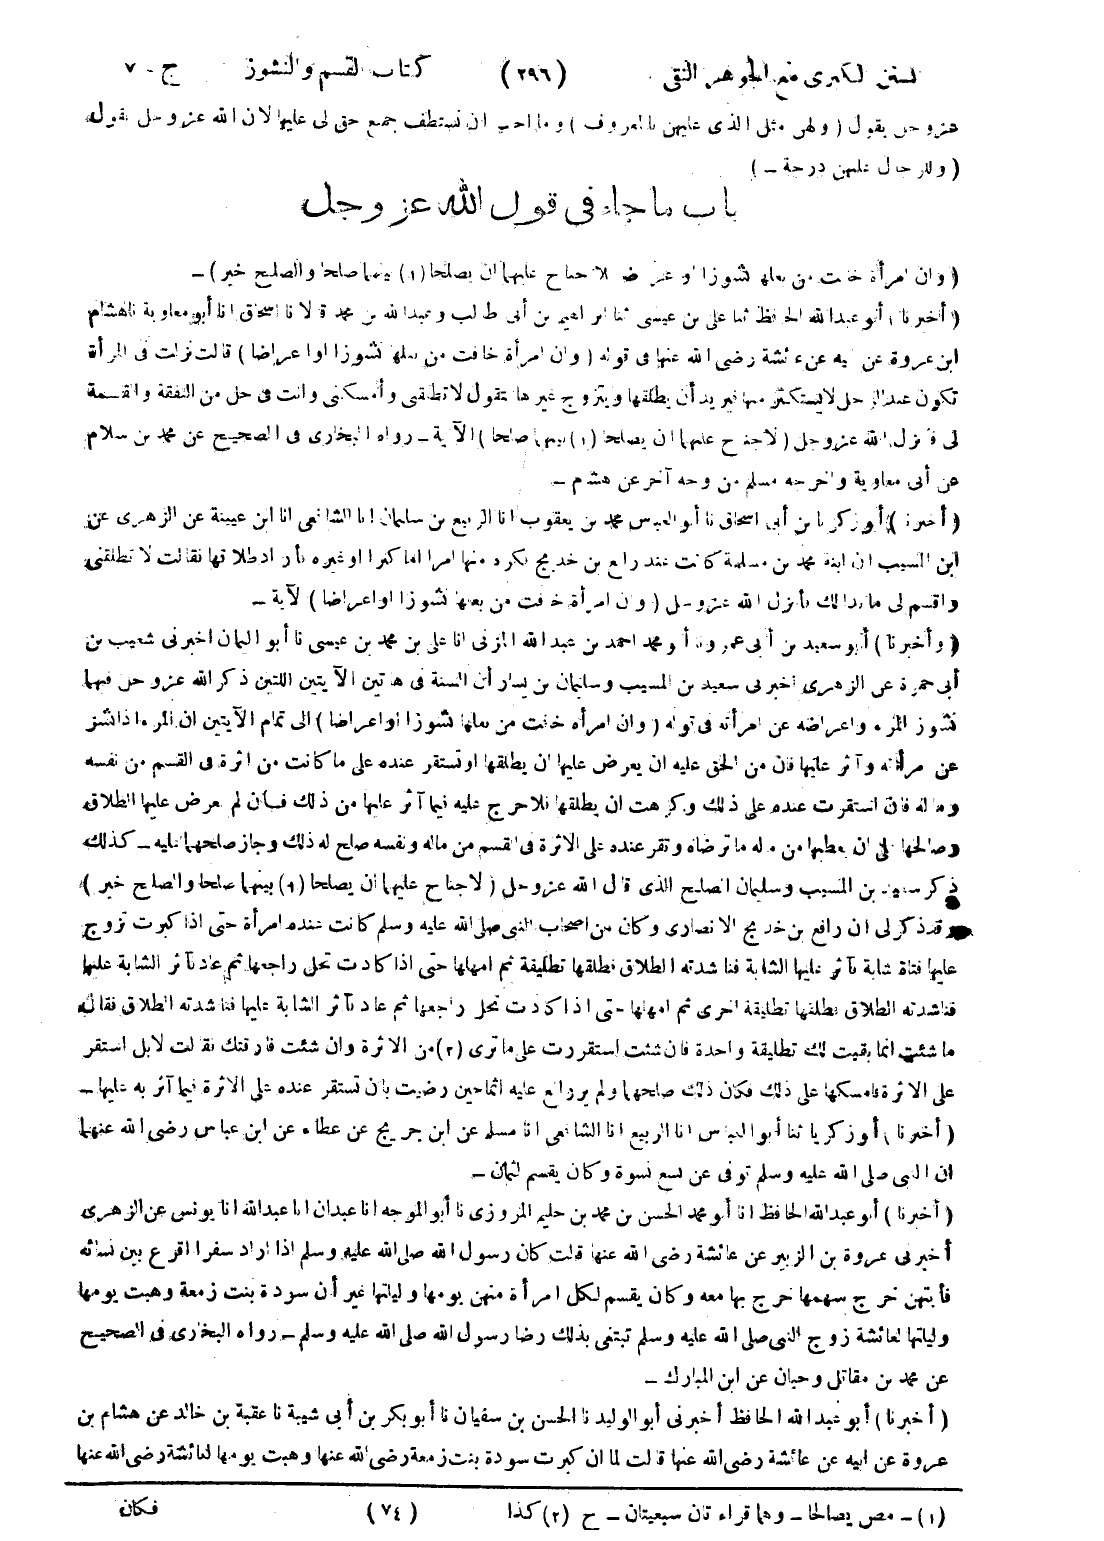 السنن الكبرى مع الجوهر النقى (٢٩٦) كتاب القسم والنشوز ج - ٧
عز وجل يقول ( ولهن مثل الذى عليهن بالمعروف ) وما احب ان تستطف جميع حق لى عليها لان الله عز وجل يقول
( وللرجال عليهن درجة - )
باب ماجاء فى قول الله عز وجل
( وان امرأة خافت من بعلها نشوزا او اعراضا فلا جناح عليهما ان يصلحا (١) بينهما صلحا والصلح خير ) -
( أخبرنا ) أبو عبدالله الحافظ ثنا على بن عيسى ثنا ابراهيم بن أبى طالب وعبدالله بن محمد قالا نا اسحاق انا أبو معاوية نا هشام
ابن عروة عن ابيه عن عائشة رضى الله عنها فى قوله ( وان امرأة خافت من بعلها نشوزا او اعراضا ) قالت نزلت فى المرأة
تكون عند الرجل لا يستكثر منها فيريد أن يطلقها ويتزوج غيرها تقول لا تطلقنى وأمسكنى وانت فى حل من النفقة والقسمة
لى فانزل الله عز وجل ( لا جناح عليهما ان يصلحا (١) بينهما صلحا ) الآية - رواه البخارى فى الصحيح عن محمد بن سلام
عن أبى معاوية واخرجه مسلم من وجه آخر عن هشام -
( أخبرنا ) أبو زكريا بن أبى اسحاق نا أبو العباس محمد بن يعقوب انا الربيع بن سليمان انا الشافعى انا ابن عيينة عن الزهرى عن
ابن المسيب ان ابنة محمد بن مسلمة كانت عند رافع بن خديج فكره منها امرا اما كبرا او غيره فأراد طلاقها فقالت لا تطلقنى
واقسم لى ما بدالك فأنزل الله عز وجل ( وان امرأة خافت من بعلها نشوزا او اعراضا ) الآية -
( وأخبرنا ) أبو سعيد بن أبى عمرو نا أبو محمد احمد بن عبد الله المزنى انا على بن محمد بن عيسى نا أبو اليمان اخبرنى شعيب بن
أبى حمزة عن الزهرى اخبرنى سعيد بن المسيب وسليمان بن يسار أن السنة فى هاتين الآيتين اللتين ذكر الله عز وجل فيهما
نشوز المرء واعراضه عن امرأته فى قوله ( وان امرأة خافت من بعلها نشوزا او اعراضا ) الى تمام الآيتين ان المرء اذا نشز
عن امرأته وآثر عليها فان من الحق عليه ان يعرض عليها ان يطلقها او تستقر عنده على ما كانت من اثرة فى القسم من نفسه
وماله فان استقرت عنده على ذلك وكرهت ان يطلقها فلا حرج عليه فيما آثر عليها من ذلك فان لم يعرض عليها الطلاق
وصالحها على ان يعطيها من ماله ما ترضاه وتقر عنده على الاثرة فى القسم من ماله ونفسه صلح له ذلك وجاز صلحهما عليه - كذلك
ذكر سعيد بن المسيب وسليمان الصلح الذى قال الله عز وجل ( لا جناح عليهما ان يصلحا (١) بينهما صلحا والصلح خير )
وقد ذكر لى ان رافع بن خديج الانصارى وكان من اصحاب النبى صلى الله عليه وسلم كانت عنده امرأة حتى اذا كبرت تزوج
عليها فتاة شابة فآثر عليها الشابة فناشدته الطلاق فطلقها تطليقة ثم امهلها حتى اذا كادت تحل راجعها ثم عاد فآثر الشابة عليها
فناشدته الطلاق فطلقها تطليقة اخرى ثم امهلها حتى اذا كادت تحل راجعها ثم عاد فآثر الشابة عليها فناشدته الطلاق فقال
ما شئت انما بقيت لك تطليقة واحدة فان شئت استقررت على ما ترى (٢) من الاثرة وان شئت فارقتك فقالت لا بل استقر
على الاثرة فامسكها على ذلك فكان ذلك صلحهما ولم ير رافع عليه اثما حين رضيت بان تستقر عنده على الاثرة فيما آثر به عليها -
( أخبرنا ) أبو زكريا ثنا أبو العباس انا الربيع انا الشافعى انا مسلم عن ابن جريج عن عطاء عن ابن عباس رضى الله عنهما
ان النبى صلى الله عليه وسلم توفى عن تسع نسوة وكان يقسم لثمان -
( أخبرنا ) أبو عبدالله الحافظ انا أبو محمد الحسن بن محمد بن حليم المروزى نا أبو الموجه انا عبدان انا عبدالله انا يونس عن الزهرى
أخبرنى عروة بن الزبير عن عائشة رضى الله عنها قالت كان رسول الله صلى الله عليه وسلم اذا اراد سفرا اقرع بين نسائه
فأيتهن خرج سهمها خرج بها معه وكان يقسم لكل امرأة منهن يومها وليلتها غير أن سودة بنت زمعة وهبت يومها
وليلتها لعائشة زوج النبى صلى الله عليه وسلم تبتغى بذلك رضا رسول الله صلى الله عليه وسلم - رواه البخارى فى الصحيح
عن محمد بن مقاتل وحبان عن ابن المبارك -
( أخبرنا ) أبو عبد الله الحافظ أخبرنى أبو الوليد نا الحسن بن سفيان نا أبو بكر بن أبى شيبة نا عقبة بن خالد عن هشام بن
عروة عن ابيه عن عائشة رضى الله عنها قالت لما ان كبرت سودة بنت زمعة رضى الله عنها وهبت يومها لعائشة رضى الله عنها
(١) - مص يصالحا - وهما قراءتان سبعيتان - ح (٢) كذا (٧٤) فكان